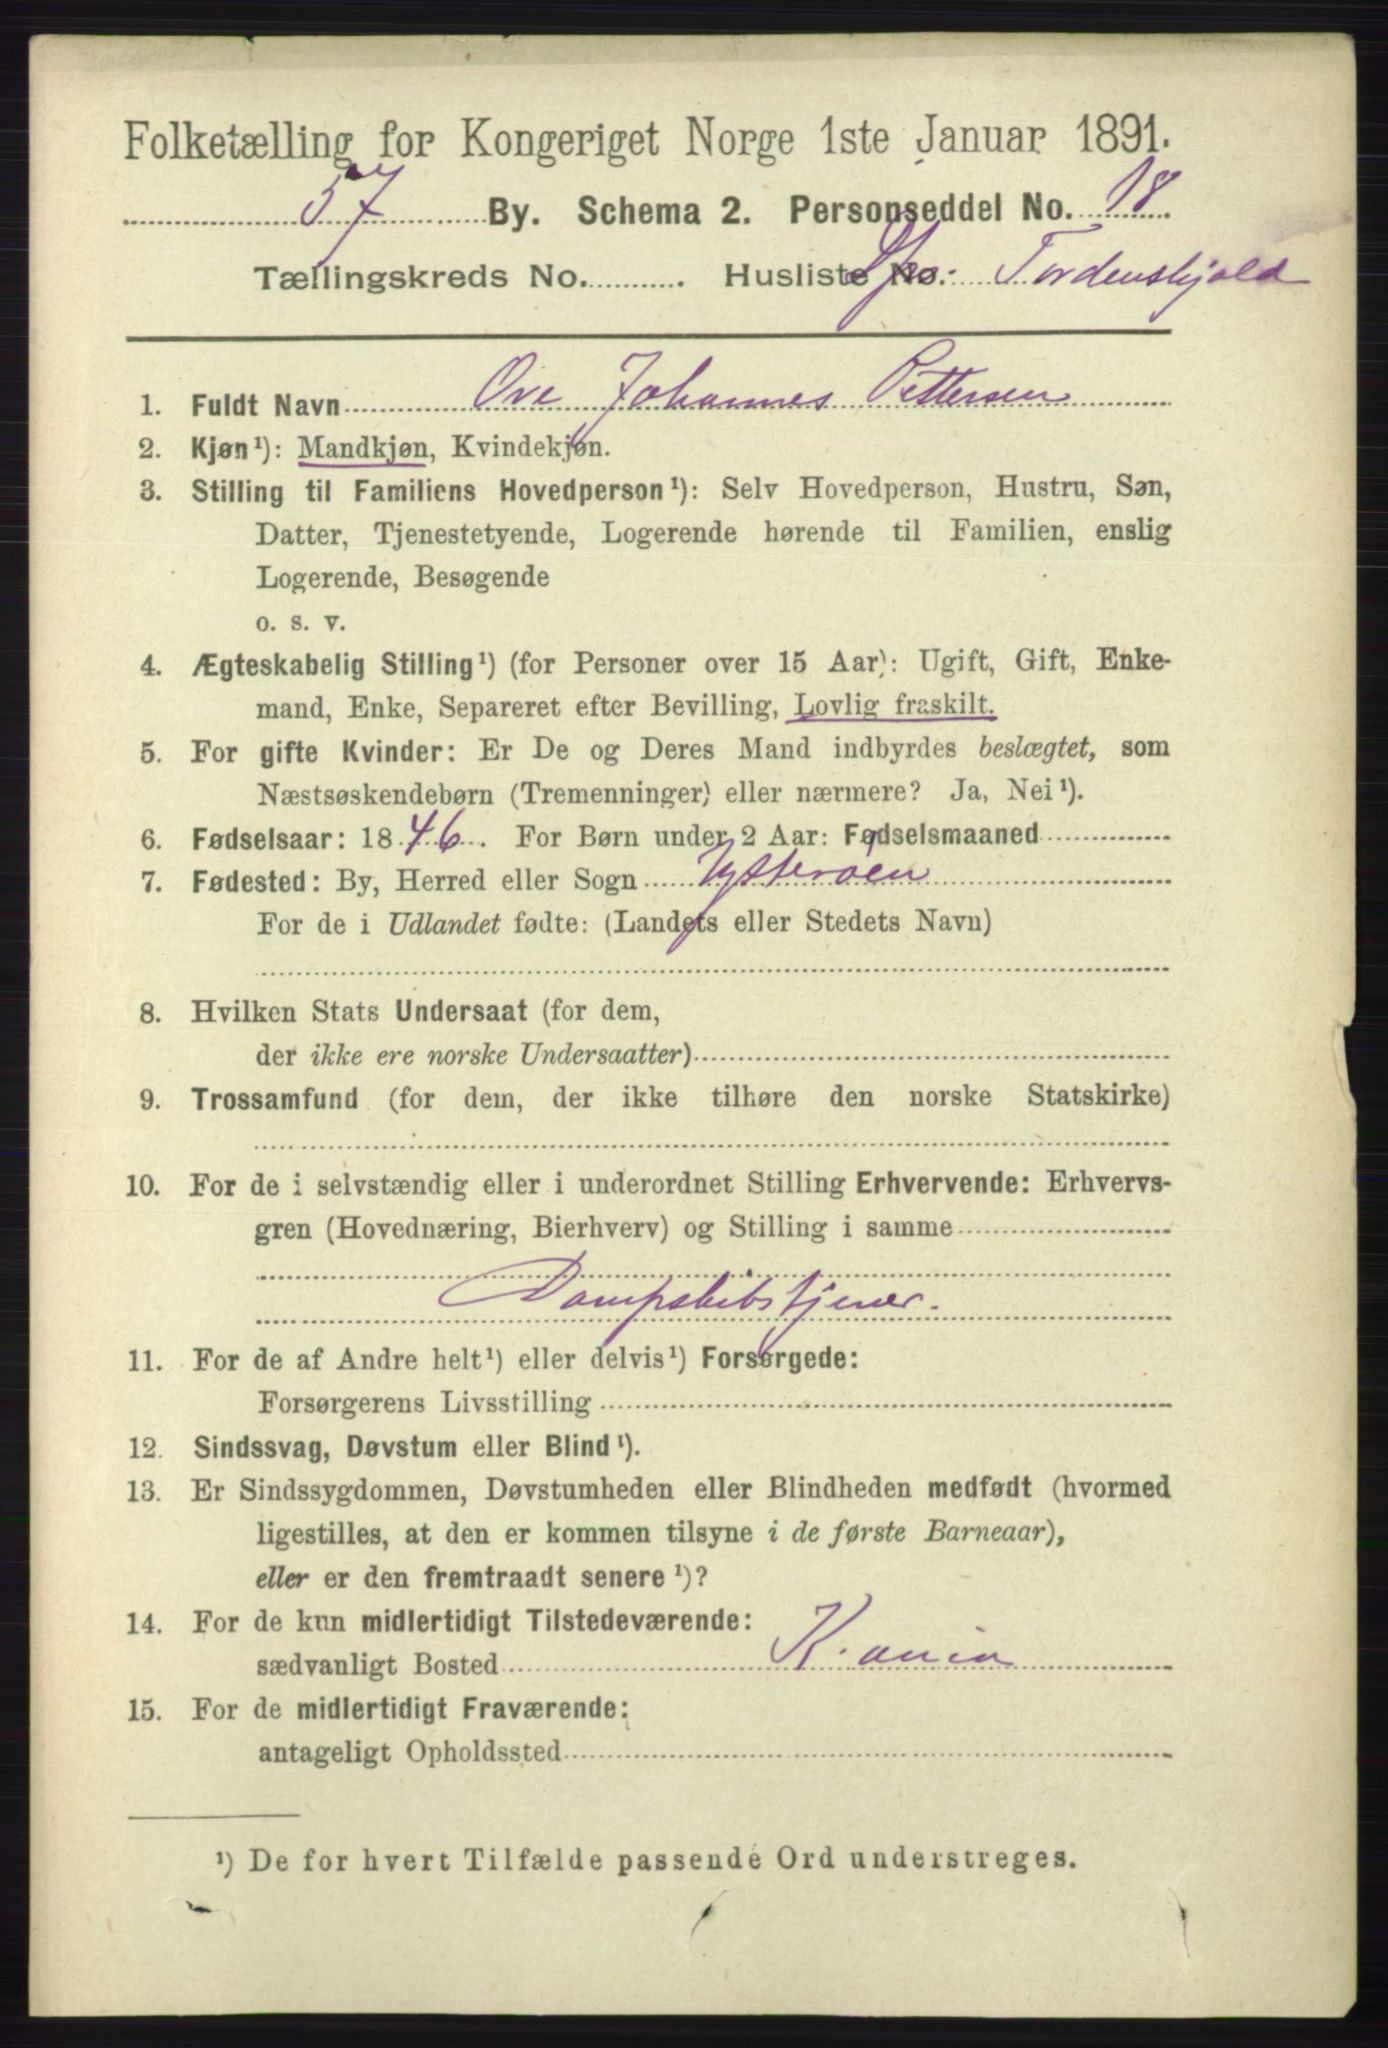 Folketælling for Kongeriget Norge 1ste Januar 1891.
57 By. Schema 2. Personseddel No. 18
Tællingskreds No. Husliste No: Tordenskjold
1. Fuldt Navn Ove Johannes Pettersen
2. Kjøn¹): Mandkjøn, Kvindekjøn.
3. Stilling til Familiens Hovedperson¹): Selv Hovedperson, Hustru, Søn,
Datter, Tjenestetyende, Logerende hørende til Familien, enslig
Logerende, Besøgende
o. s. v.
4. Ægteskabelig Stilling¹) (for Personer over 15 Aar): Ugift, Gift, Enke-
mand, Enke, Separeret efter Bevilling, Lovlig fraskilt.
5. For gifte Kvinder: Er De og Deres Mand indbyrdes beslægtet, som
Næstsøskendebørn (Tremenninger) eller nærmere? Ja, Nei¹).
6. Fødselsaar: 1846. For Børn under 2 Aar: Fødselsmaaned
7. Fødested: By, Herred eller Sogn Ysterøen
For de i Udlandet fødte: (Landets eller Stedets Navn)
8. Hvilken Stats Undersaat (for dem,
der ikke ere norske Undersaatter)
9. Trossamfund (for dem, der ikke tilhøre den norske Statskirke)
10. For de i selvstændig eller i underordnet Stilling Erhvervende: Erhvervs-
gren (Hovednæring, Bierhverv) og Stilling i samme
Dampskibstjener.
11. For de af Andre helt¹) eller delvis¹) Forsørgede:
Forsørgerens Livsstilling
12. Sindssvag, Døvstum eller Blind¹).
13. Er Sindssygdommen, Døvstumheden eller Blindheden medfødt (hvormed
ligestilles, at den er kommen tilsyne i de første Barneaar),
eller er den fremtraadt senere¹)?
14. For de kun midlertidigt Tilstedeværende:
sædvanligt Bosted K.ania
15. For de midlertidigt Fraværende:
antageligt Opholdssted
¹) De for hvert Tilfælde passende Ord understreges.